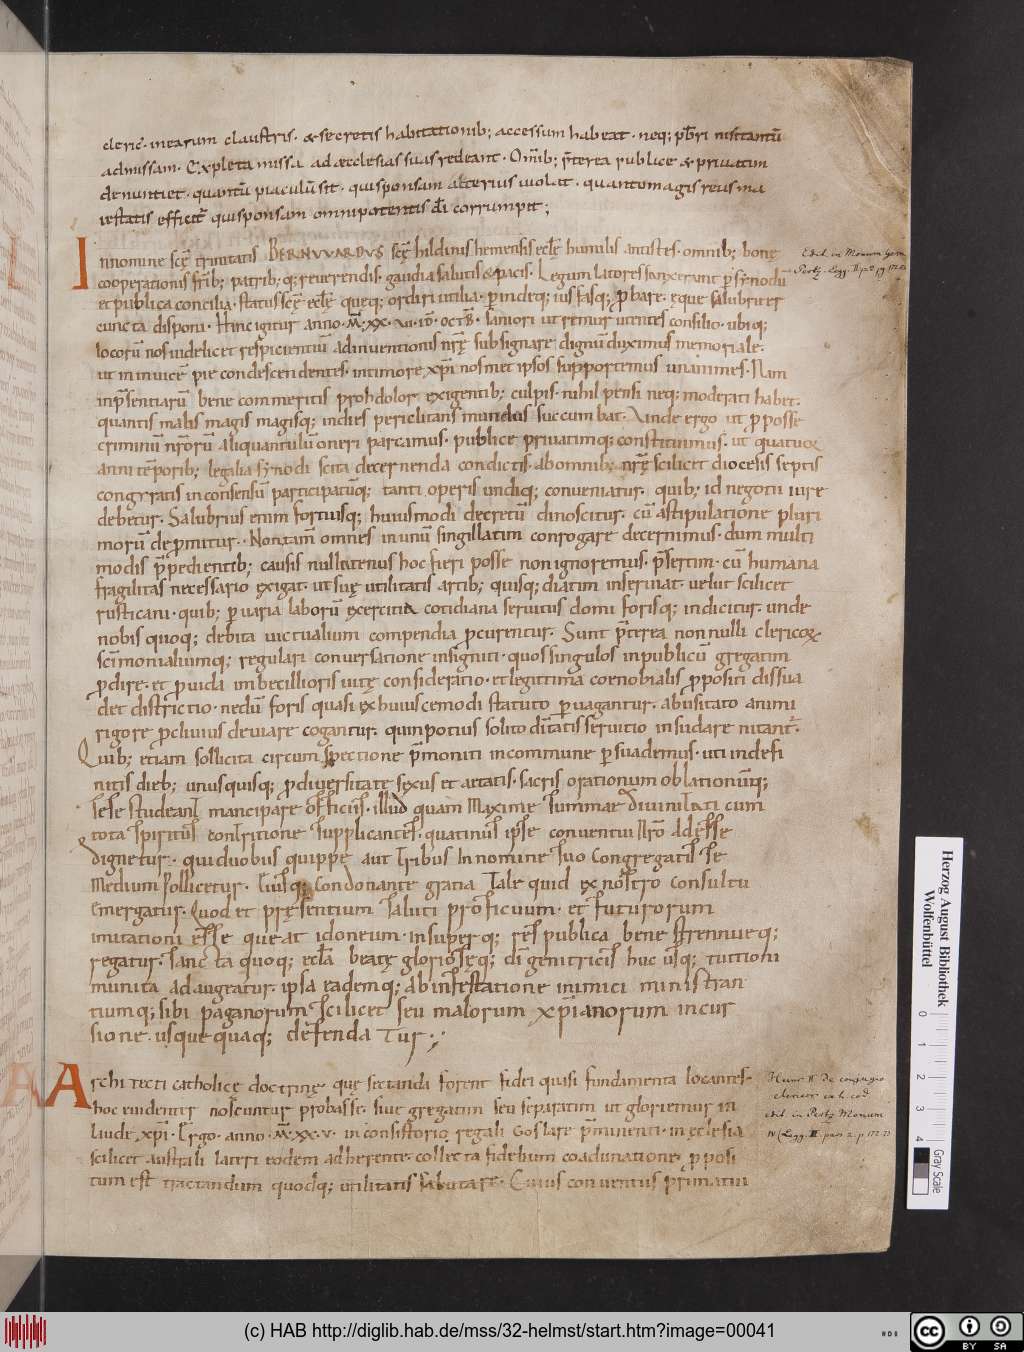 cleric. mearum claustris. & secretis habitationib; accessum habeat. neq; pbri missantū
admissam. Expleta missa ad æcclesias suas redeant. Omib; pterea publice & priuatim
denuntiet. quantū piaculū sit. qui sponsam alterius uiolat. quanto magis reus ma
iestatis efficit qui sponsam omnipotentis di corrumpit;
In nomine scę trinitatis BERNVVARDVS scę hildinishemensis ecłę humilis antistes. omnib; bonę
cooperationis frib; patrib; q; reuerendis. gaudia salutis & pacis. Legum latores sanxerunt p synodū
et publica concilia. statusscę ecłę queq; ordiri utilia. pindeq; ius fasq; pbare. eque salubriter
cuncta disponi. Hinc igitur anno. M. XX. VII. ID. OCTB. samori ut remur utentes consilio. ubiq;
locorū nos uidelicet respicientiū adinuentionis nrę subsignare dignū duximus memoriale.
ut in inuicē pie condescendentes. intimore xpi nosmet ipsos supportemus unanimes. Nam
in psentiarū bene commeritis proh dolor exigentib; culpis. nihil pensi neq; moderati habet.
quantis malis magis magisq; indies periclitans mundus succumbat. Vnde ergo ut p posse
criminū nrorū aliquantulū oneri parcamus. publice priuatimq; constituimus. ut quatuor
anni tēporib; legalia synodi scita decernenda condictis. ab omnib; nrę scilicet diocesis septis
congrratis in consensū participatūq; tanti operis undiq; conueniatur. quib; id negotii iure
debetur. Salubrius enim fortiusq; huiusmodi decretū dinoscitur. cū astipulatione pluri
morū depmitur. Non tam omnes in unū singillatim conrogare decernimus. dum multi
modis ppedientib; causis nullatenus hoc fieri posse non ignoremus. psertim. cū humana
fragilitas necessario exigat. ut suę utilitatis artib; quisq; diatim inseruiat. uelut scilicet
rusticani. quib; p uaria laborū exercitia cotidiana seruitus domi forisq; indicitur. unde
nobis quoq; debita uictualium compendia pcurentur. Sunt pterea nonnulli clericor
scimonialiumq; regulari conuersatione insigniti. quos singulos in publicū gregatim
pdire. et puida imbecillioris uitę consideratio. et legittima coenobialis ppositi dissua
det districtio. nedū foris quasi ex huiuscemodi statuto puagantur. abusitato animi
rigore procliuius deuiare cogantur. quin potius solito ditatis seruitio insudare nitant.
Quib; etiam sollicita circumspectione pmoniti in commune psuademus. uti indefi
nitis dieb; unusquisq; pdiuersitate sexus et aetatis. sacris orationum oblationūq;
sese studeant mancipare officiis. illud quam Maxime summae diuinitati cum
tota spiritus contritione supplicantes. quatinus ipse conuentui nro Adesse
dignetur. qui duobus quippe aut tribus In nomine suo Congregatis se
Medium pollicetur. Eiusq; Condonante gratia Tale quid ex nostro consultu
emergatur. Quod et pręsentium saluti proficuum. et futurorum
imitationi esse queat idoneum. insuperq; res publica bene strennueq;
regatur. sancta quoq; eccla beatę glorioseq; di genitricis huc usq; tuitioni
munita ad augeatur. ipsa eademq; ab infestatione inimici ministran
tiumq; sibi paganorum scilicet seu malorum xpianorum incur
sione. usque quaq; defendatur;
Architecti catholicę doctrinę. quę sectanda forent fidei quisi fundamenta locantes.
hoc euidentis noscuntur probasse. siue gregatim seu separatim ut gloriemur in
laude xpi. Ergo. anno. M. XX. V. in consistorio regali Goslare pminenti. in ecclesia
scilicet australi lateri eodem adherente. collecta fidelium coadunatione. pposi
tum est tractandum quodq; utilitatis salutare. Cuius conuentus primatui
Edid. in Monum Germ
Pertz. Legg. II p. 2 pg. 172
Henr. II De conjugio
clericor. ex h. cod.
edit. in Pertz Monum
IV (Legg. II. pars 2. p. 172.
Herzog August Bibliothek
Wolfenbüttel
0 1 2 3 4
Gray Scale
(c) HAB http://diglib.hab.de/mss/32-helmst/start.htm?image=00041
cc BY SA